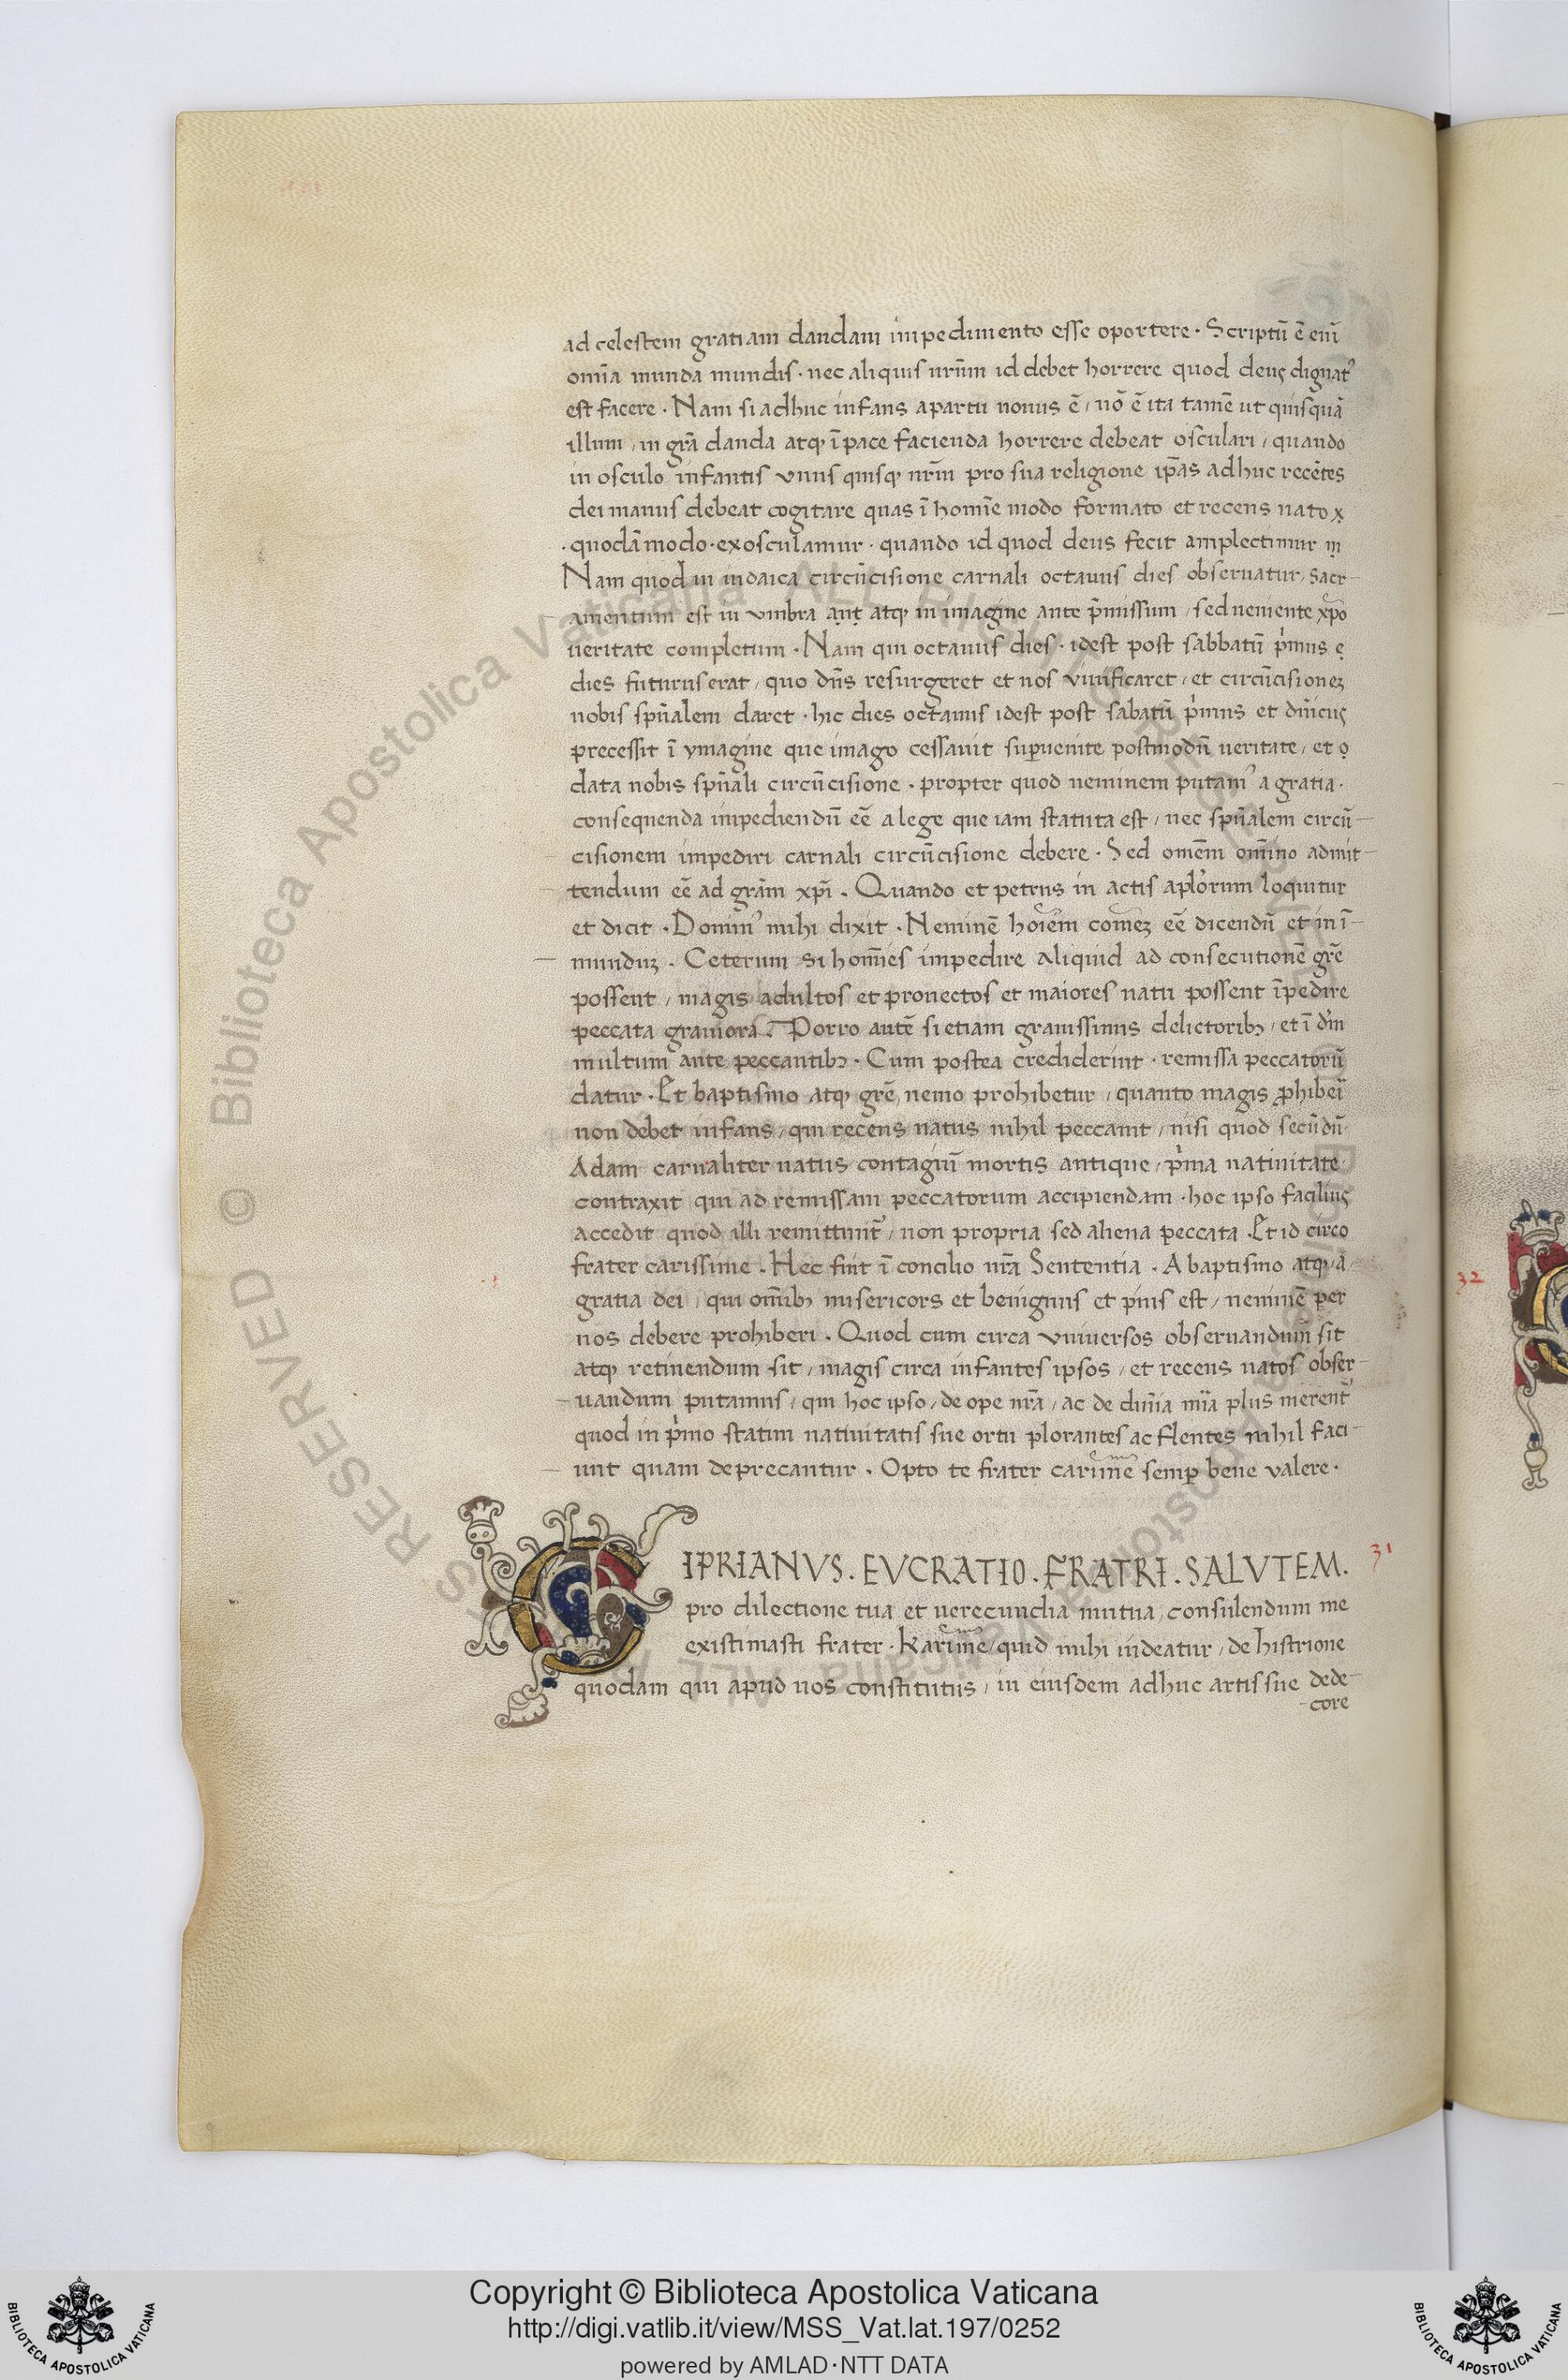 ad celestem gratiam dandam impedimento esse oportere · Scriptū ē enī
omīa munda mundis · nec aliquis nr̄um id debet horrere quod deus dignatꝰ
est facere · Nam si adhuc infans a partu nouus ē / nō ē ita tamē ut quisquā
illum / in gr̄a danda atqꝫ ī pace facienda horrere debeat osculari / quando
in osculo infantis vnus quisqꝫ nr̄m pro sua religione ip̄as adhuc recētes
dei manus debeat cogitare quas ī homīe modo formato et recens nato x
· quodā modo · exosculamur · quando id quod deus fecit amplectimur m
Nam quod in iudaica circūcisione carnali octauus dies obseruatur / sacr-
amentum est in vmbra ant atqꝫ in imagine ante p̄missum / sed ueniente xp̄o
ueritate completum · Nam qui octauus dies · idest post sabbatū pⁱmus e
dies futurus erat / quo dn̄s resurgeret et nos viuificaret / et circūcisionez
nobis sp̄ualem daret · hic dies octauus idest post sabatū pⁱmus et dn̄icus
precessit ī ymagine que imago cessauit suꝑuenite postmodū ueritate / et o
data nobis sp̄uali circūcisione · propter quod neminem putamꝰ a gratia ·
consequenda impediendū eē a lege que iam statuta est / nec sp̄ualem circū-
cisionem impediri carnali circūcisione debere · Sed omēm omīno admit-
tendum eē ad gr̄am xp̄i · Quando et petrus in actis apl̄orum loquitur
et dicit · Dominꝰ mihi dixit · Neminē hoīem comez eē dicendū et in ī-
munduz · Ceterum si homīes impedire aliquid ad consecutionē gr̄e
possent / magis adultos et prouectos et maiores natu possent īpedire
peccata grauiora · Porro autē si etiam grauissimis delictoribꝫ / et ī dm̄
multum ante peccantibꝫ · Cum postea crediderint · remissa peccatorū
datur · Et baptismo atqꝫ gr̄e nemo prohibetur / quanto magis ꝓhiberi
non debet infans / qui recens natus nihil peccauit / nisi quod secūdū
Adam carnaliter natus contagiū mortis antique / pⁱma natiuitate
contraxit qui ad remissam peccatorum accipiendam · hoc ipso facilius
accedit quod illi remittuntᷣ / non propria sed aliena peccata · Et id circo
frater carissime · Hec fuit ī concilio nr̄a Sententia · A baptismo atqꝫ a
gratia dei / qui om̄ibꝫ misericors et benignus et pius est / neminē per
nos debere prohiberi · Quod cum circa vniuersos obseruandum sit
atqꝫ retinendum sit / magis circa infantes ipsos / et recens natos obser-
uandum putamus / qui hoc ipso / de ope nr̄a / ac de diuīa mīa plus merentᷣ
quod in pⁱmo statim natiuitatis sue ortu plorantes ac flentes nihil faci-
unt quam deprecantur · Opto te frater carim̄e semꝑ bene valere ·
CIPRIANVS · EVCRATIO · FRATRI · SALVTEM · 31
pro dilectione tua et uerecundia mutua / consulendum me
existimasti frater · Karim̄e / quid mihi uideatur / de histrione
quodam qui apud uos constitutus / in eiusdem adhuc artis sue dede-
-core
32
RESERVED © Biblioteca Apostolica Vaticana ALL RIGHTS
Copyright © Biblioteca Apostolica Vaticana
http://digi.vatlib.it/view/MSS_Vat.lat.197/0252
powered by AMLAD·NTT DATA
BIBLIOTECA APOSTOLICA VATICANA
BIBLIOTECA APOSTOLICA VATICANA